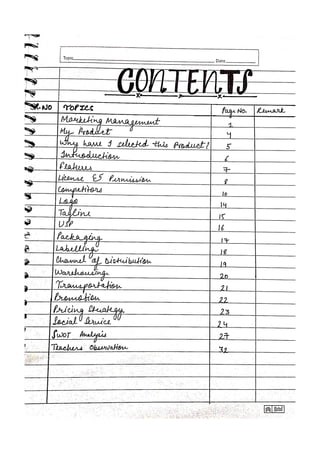 Topic Date
CONTENTS
SR.NO TOPICS Page No. Remark
Marketing Management 1
My Product 4
Why have I selected this Product? 5
Introduction 6
Features 7
License & Permission 8
Competitors 10
Logo 14
Tagline 15
USP 16
Packaging 17
Labelling 18
Channel of Distribution 19
Warehousing 20
Transportation 21
Promotion 22
Pricing Strategy 23
Social Service 24
SWOT Analysis 27
Teachers Observation 32